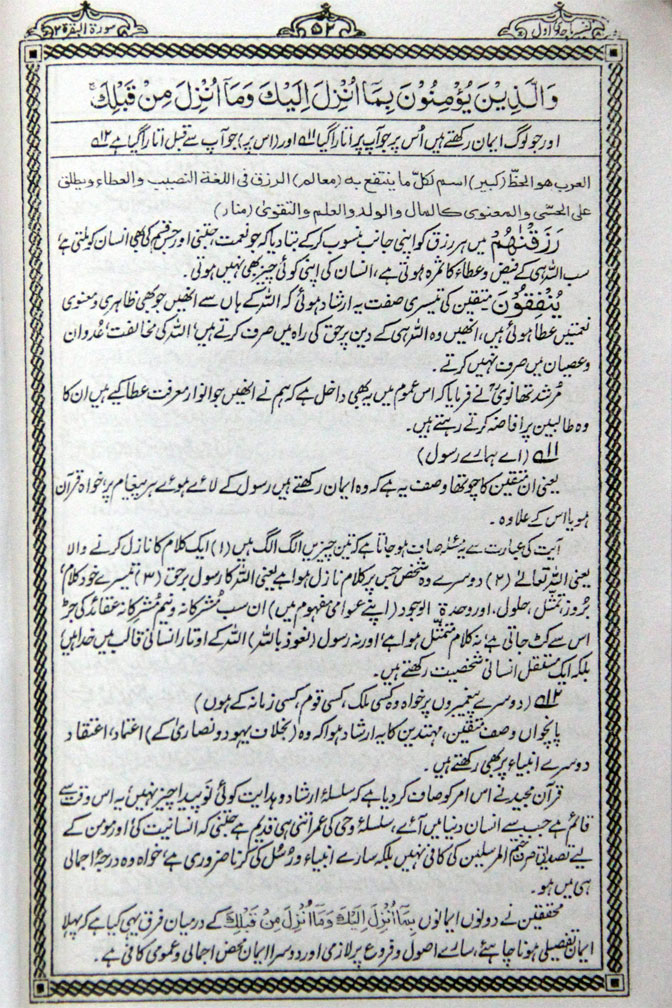 تفسیر ماجدی اول
۵۲
سورۃ البقرۃ ۲
وَالَّذِیْنَ یُؤْمِنُوْنَ بِمَآ اُنْزِلَ اِلَیْكَ وَمَآ اُنْزِلَ مِنْ قَبْلِكَ
اور جو لوگ ایمان رکھتے ہیں اُس پر جو آپ پر اتارا گیا ۱۱ اور (اس پر) جو آپ سے قبل اتارا گیا ہے ۱۲
العرب هو الحظ (کبیر) اسم لکلّ ما ینتفع به (معالم) الرزق فی اللغة النصیب والعطاء ویطلق
علی الحسّی والمعنوی کالمال والولد والعلم والتقویٰ (منار)
رَزَقْنٰهُمْ میں ہر رزق کو اپنی جانب منسوب کرکے بتا دیا کہ جو نعمت جتنی اور جس قسم کی بھی انسان کو ملتی ہے
سب اللہ ہی کے فیض و عطاء کا ثمرہ ہوتی ہے، انسان کی اپنی کوئی چیز بھی نہیں ہوتی۔
یُنْفِقُوْنَ متقین کی تیسری صفت یہ ارشاد ہوئی کہ اللہ کے ہاں سے انھیں جو بھی ظاہری و معنوی
نعمتیں عطا ہوئی ہیں، انھیں وہ اللہ ہی کے دین برحق کی راہ میں صرف کرتے ہیں، اللہ کی مخالفت، عُدوان
و عصیان میں صرف نہیں کرتے۔
مُرشد تھانویؒ نے فرمایا کہ اس عموم میں یہ بھی داخل ہے کہ ہم نے انھیں جو انوار معرفت عطا کیے ہیں ان کا
وہ طالبین پر افاضہ کرتے رہتے ہیں۔
۱۱ (اے ہمارے رسول)
یعنی ان متقین کا چوتھا وصف یہ ہے کہ وہ ایمان رکھتے ہیں رسول کے لائے ہوئے ہر پیغام پر، خواہ قرآن
ہو یا اس کے علاوہ۔
آیت کی عبارت سے یہ مسئلہ صاف ہو جاتا ہے کہ تین چیزیں الگ الگ ہیں (۱) ایک کلام کا نازل کرنے والا
یعنی اللہ تعالےٰ (۲) دوسرے وہ شخص جس پر کلام نازل ہوا ہے یعنی اللہ کا رسول برحق (۳) تیسرے خود کلام،
بُروز، تمثّل، حلول، اور وحدۃ الوجود (اپنے عوامی مفہوم میں) ان سب مُشرکانہ و نیم مُشرکانہ عقائد کی جڑ
اس سے کٹ جاتی ہے، نہ کلام متمثل ہوا ہے، اور نہ رسول (نعوذ باللہ) اللہ کے اوتار انسانی قالب میں خدا ہیں،
بلکہ ایک مستقل انسانی شخصیت رکھتے ہیں۔
۱۲ (دوسرے پیمبروں پر خواہ وہ کسی ملک، کسی قوم، کسی زمانہ کے ہوں)
پانچواں وصف متقین، مہتدین کا یہ ارشاد ہوا کہ وہ (بخلاف یہود و نصاریٰ کے) اعتماد، اعتقاد
دوسرے انبیاء پر بھی رکھتے ہیں۔
قرآن مجید نے اس امر کو صاف کر دیا ہے کہ سلسلۂ ارشاد و ہدایت کوئی نوپیدا چیز نہیں، یہ اس وقت سے
قائم ہے جب سے انسان دنیا میں آئے، سلسلۂ وحی کی عمر اتنی ہی قدیم ہے جتنی کہ انسانیت کی، اور مومن کے
لیے تصدیق صرف خیم المرسلین کی کافی نہیں بلکہ سارے انبیاء و رُسُل کی کرنا ضروری ہے، خواہ وہ درجۂ اجمالی
ہی میں ہو۔
محققین نے دونوں ایمانوں بِمَآ اُنْزِلَ اِلَیْكَ وَمَآ اُنْزِلَ مِنْ قَبْلِكَ کے درمیان فرق یہی کیا ہے کہ پہلا
ایمان تفصیلی ہونا چاہئے، سارے اصول و فروع پر لازمی اور دوسرا ایمان محض اجمالی و عمومی کافی ہے۔